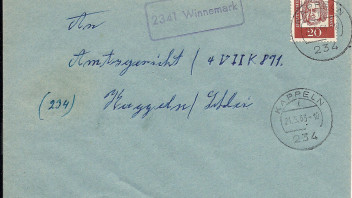 2341 Winnemark
20
234
An
Amtsgericht / 4 VII K 891.
(234) Kappeln / Schlei
KAPPELN
234